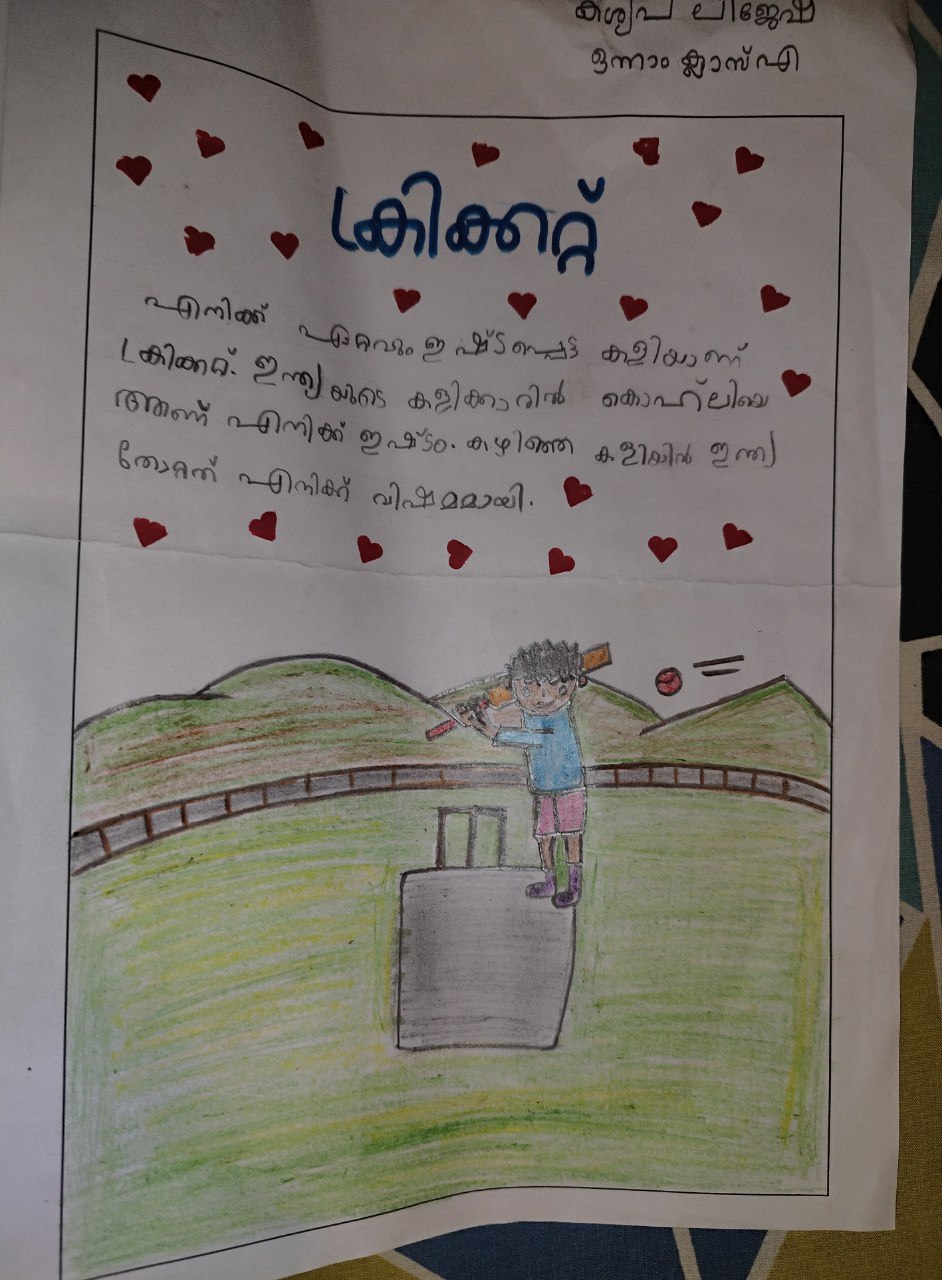 കശ്യപ ലിജേഷ്
ഒന്നാം ക്ലാസ് എ
ക്രിക്കറ്റ്
എനിക്ക് ഏറ്റവും ഇഷ്ടപ്പെട്ട കളിയാണ്
ക്രിക്കറ്റ്. ഇന്ത്യയുടെ കളിക്കാരിൽ കൊഹ്‌ലിയെ
ആണ് എനിക്ക് ഇഷ്ടം. കഴിഞ്ഞ കളിയിൽ ഇന്ത്യ
തോറ്റത് എനിക്ക് വിഷമമായി.